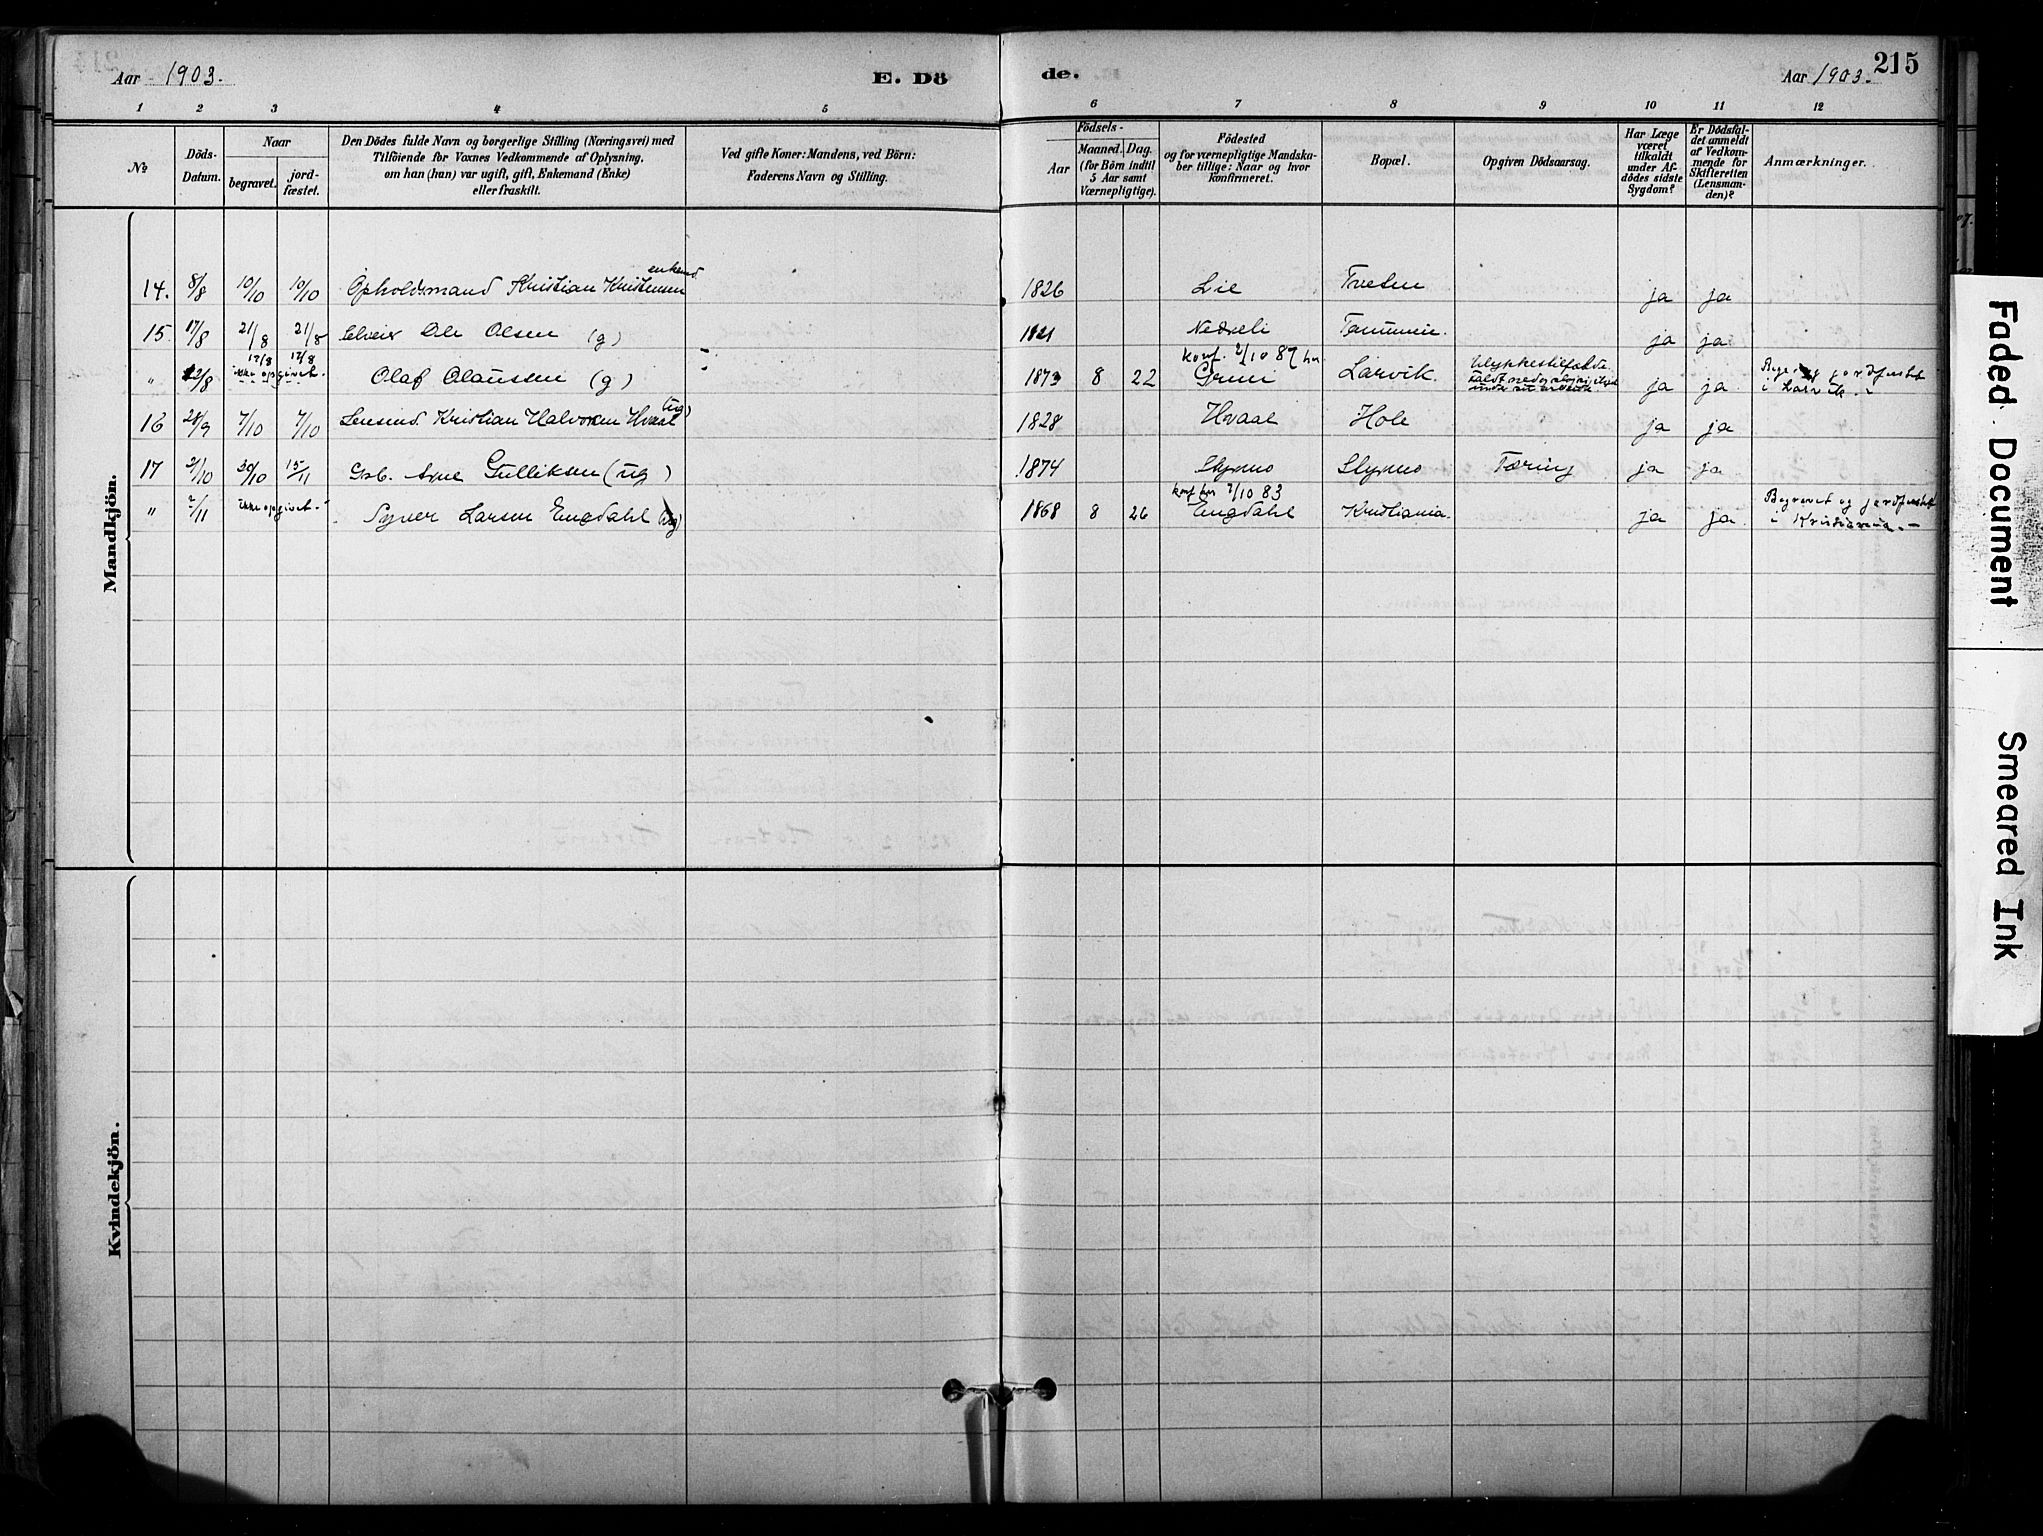 215
Aar 1903. E. Dö de. Aar 1903.
1 2 3 4 5 6 7 8 9 10 11 12
No
Döds-Datum.
Naar
begravet.
jordfæstet.
Den Dödes fulde Navn og borgerlige Stilling (Næringsvei) med
Tilföiende for Voxnes Vedkommende af Oplysning,
om han (hun) var ugift, gift, Enkemand (Enke)
eller fraskilt.
Ved gifte Koner: Mandens, ved Börn:
Faderens Navn og Stilling.
Födsels-
Aar
Maaned. Dag.
(for Börn indtil
5 Aar samt
Værnepligtige).
Födested
og for værnepligtige Mandska-
ber tillige: Naar og hvor
konfirmeret.
Bopæl.
Opgiven Dödsaarsag.
Har Læge
været
tilkaldt
under Af-
dödes sidste
Sygdom?
Er Dödsfal-
det anmeldt
af Vedkom-
mende for
Skifteretten
(Lensman-
den)?
Anmærkninger.
Mandkjön.
enkemd
14. 8/8 10/10 10/10 Opholdsmand Kristian Kristensen 1826 Lie Tveten ja ja
15. 17/8 21/8 21/8 Ole Olsen (g) 1821 Nedreli ja ja
12/8 12/8 konf. 2/10 87 her
" 12/8 ikke opgivet. Olaf Olausen (g) 1873 8 22 Larvik. ja ja jordfæstet
i Larvik.
(ug)
16 28/9 7/10 7/10 Kristian Halvorsen Hvaal 1828 Hvaal Hole ja ja
17 2/10 30/10 15/11 Gsb. Arne Gulliksen (ug) 1874 Tæring ja ja
konf her 7/10 83
" 2/11 ikke opgivet. Syver Larsen Engdahl (ug) 1868 8 26 Engdahl Kristiania. ja ja. Begravet og jordfæstet
i Kristiania. -
Kvindekjön.
Faded Document
Smeared Ink